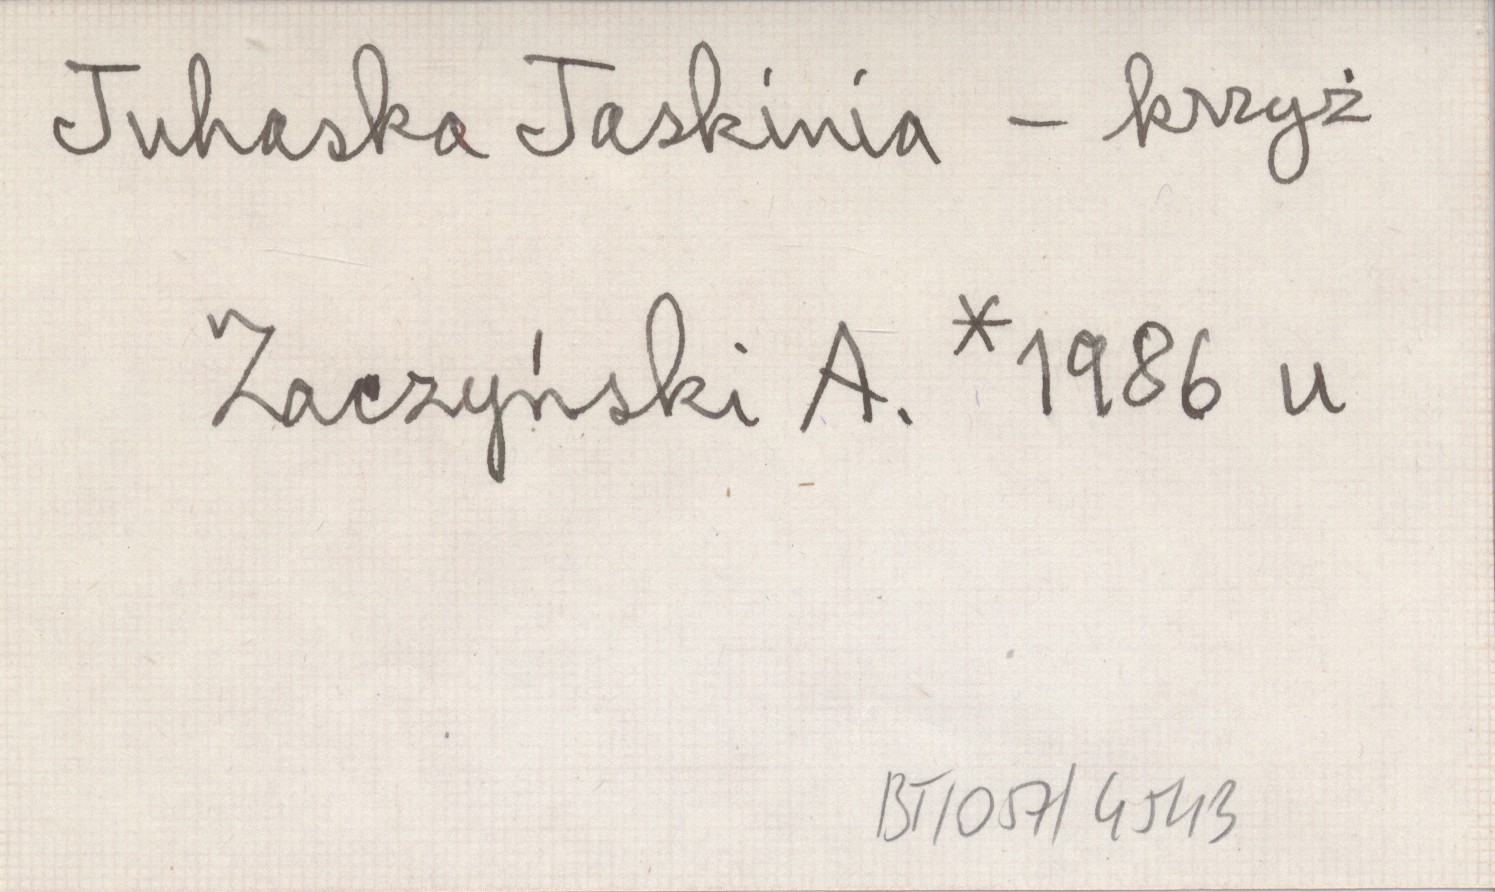 Juhaska Jaskinia - krzyż
Zaczyński A. *1986 u
BT/057/4543